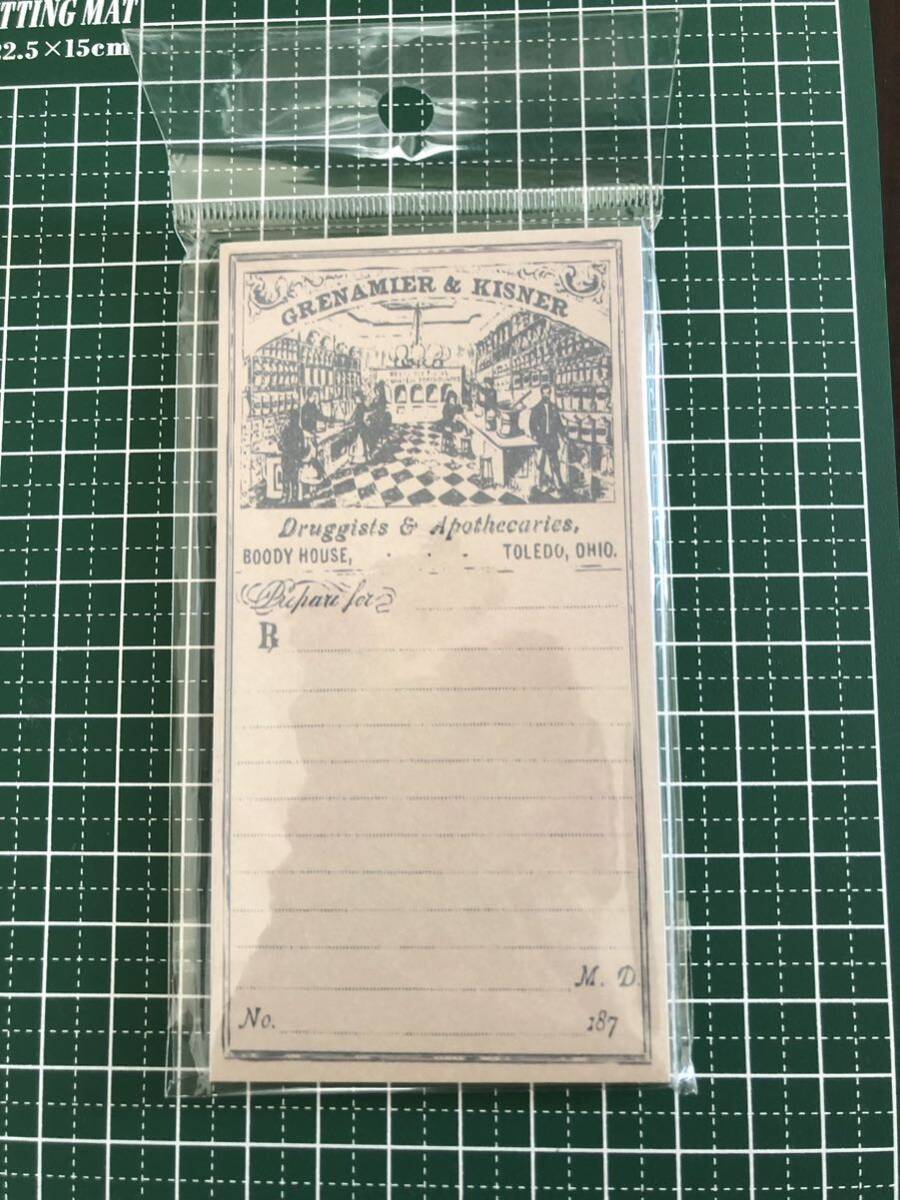 TTING MAT
22.5×15cm
GRENAMIER & KISNER
Druggists & Apothecaries,
BOODY HOUSE, . . . TOLEDO, OHIO.
Prepare for
℞
M. D.
No. 187